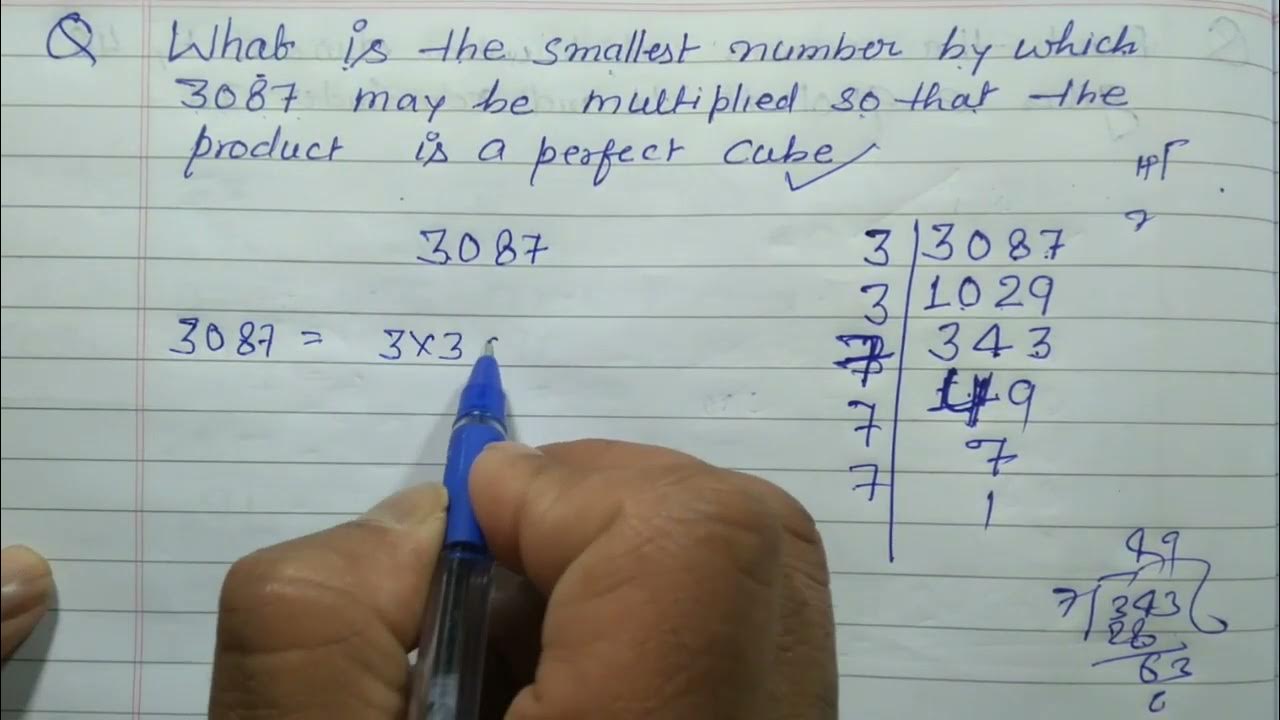 Q What is the smallest number by which
3087 may be multiplied so that the
product is a perfect cube
3087
3087 = 3×3
3 | 3087
3 | 1029
343
49
7 | 7
7 | 1
49
7 343
28
63
0
7